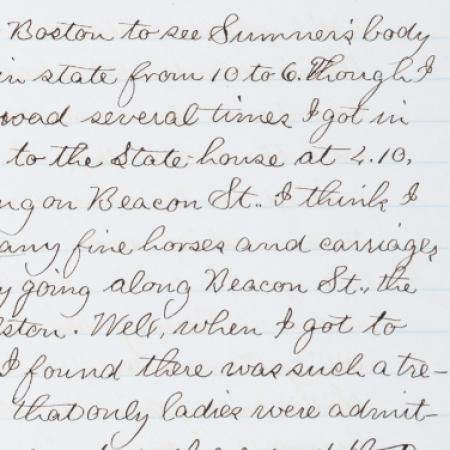 Boston to see Sumner's body
in state from 10 to 6. Though I
road several times I got in
to the State-house at 2.10,
ng on Beacon St.. I think I
any fine horses and carriages
y going along Beacon St., the
ston. Well, when I got to
I found there was such a tre-
that only ladies were admit-